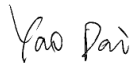 Yao Dai